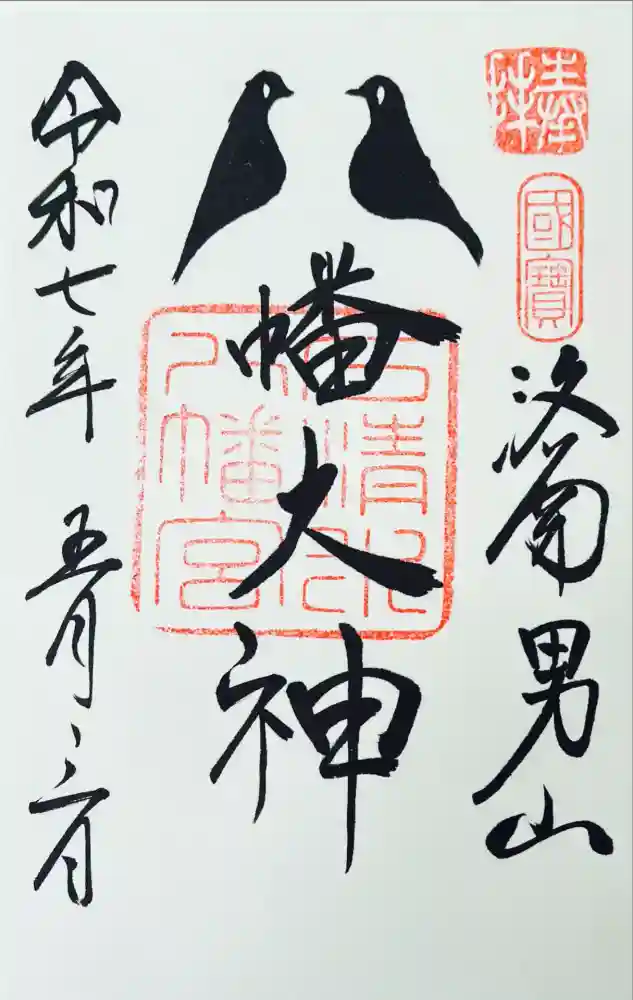 奉拝
國寶
洛南男山
八幡大神
石清水八幡宮
令和七年 五月三日